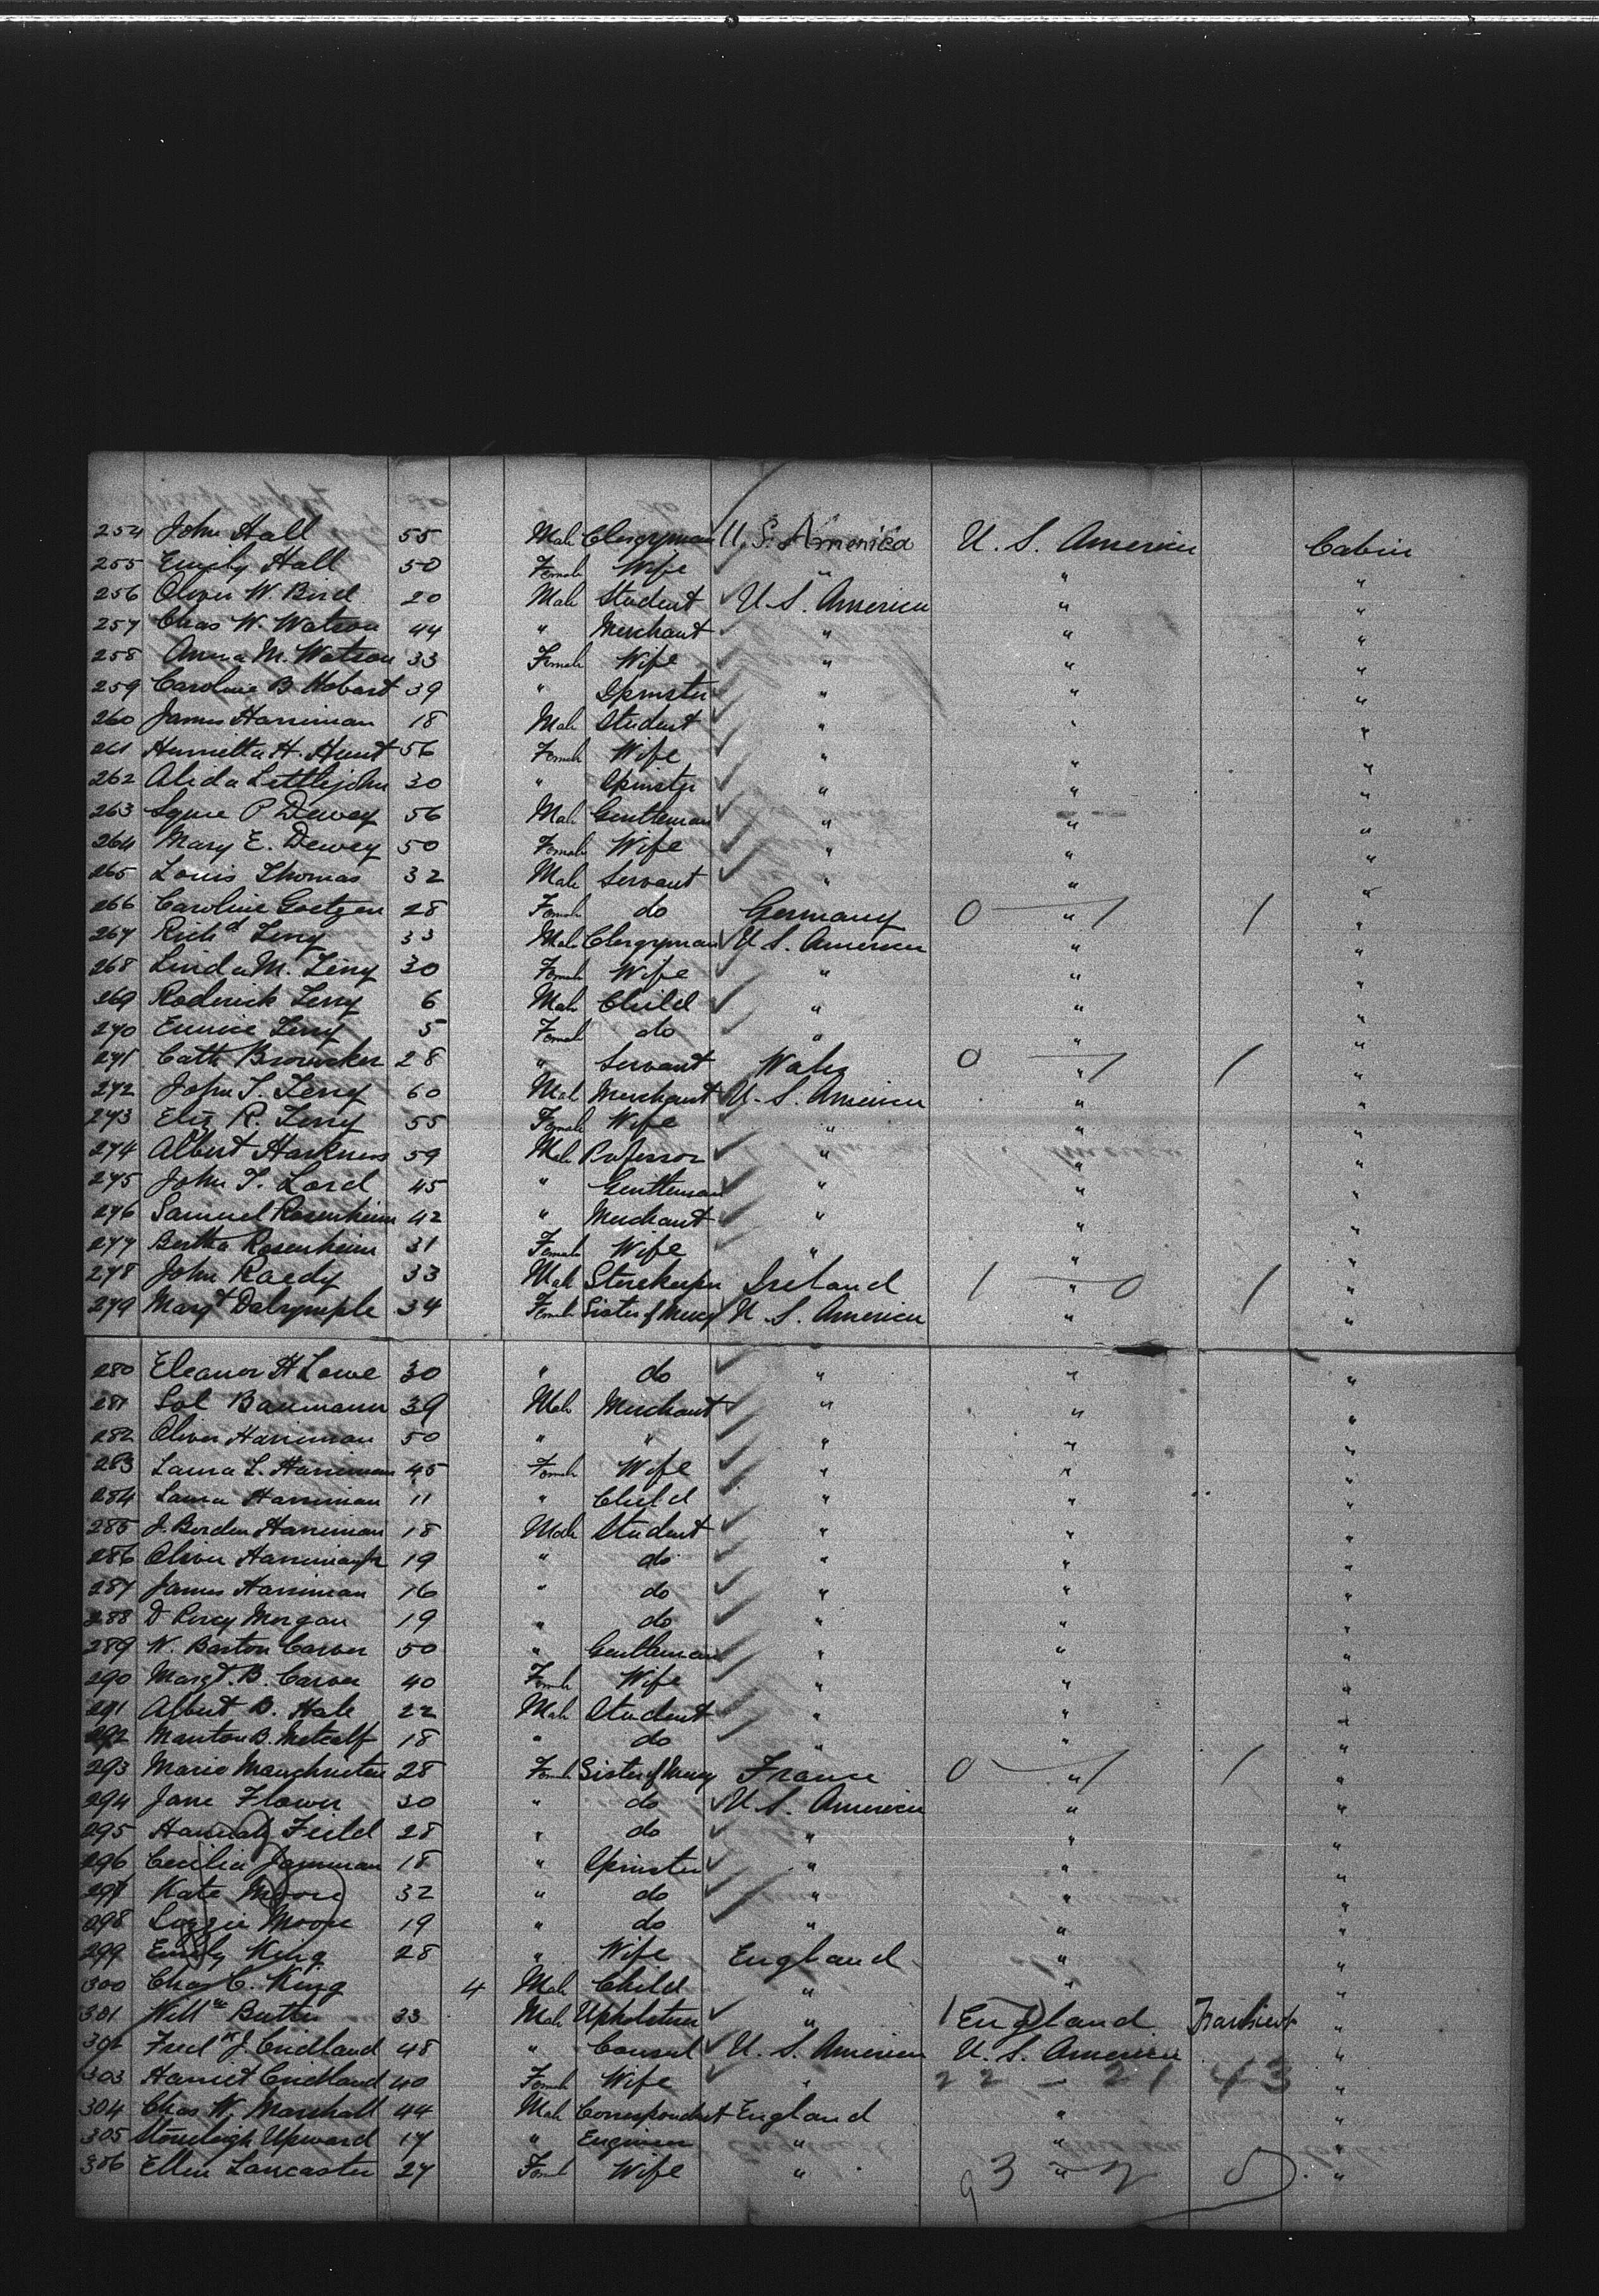 254 John Hall 55 Male Clergyman U. S. America U. S. America Cabin
255 Emily Hall 50 Female Wife " " "
256 Oliver W. Bird 20 Male Student U. S. America " "
257 Chas W. Watson 44 " Merchant " " "
258 Anna M. Watson 33 Female Wife " " "
259 Caroline B Hobart 39 " Spinster " " "
260 James Harriman 18 Male Student " " "
261 Henrietta H. Hunt 56 Female Wife " " "
262 Alida Littlejohn 30 " Spinster " " "
263 P Dewey 56 Male Gentleman " " "
264 Mary E. Dewey 50 Female Wife " " "
265 Louis Thomas 32 Male Servant " " "
266 Caroline Goetzen 28 Female do Germany 0 " 1 1 "
267 Richd Terry 33 Male Clergyman U. S. America " "
268 Linda M. Terry 30 Female Wife " " "
269 Roderick Terry 6 Male Child " " "
270 Eunice Terry 5 Female do " " "
271 Cath 28 " Servant Wales 0 " 1 1 "
272 John T. Terry 60 Male Merchant U. S. America " "
273 Eliz R. Terry 55 Female Wife " " "
274 Albert Harkness 59 Male Professor " " "
275 John T. Lord 45 " Gentleman " " "
276 Samuel Rosenheim 42 " Merchant " " "
277 Bertha Rosenheim 31 Female Wife " " "
278 John Raedy 33 Male Storekeeper Ireland 1 " 0 1 "
279 Margt Dalrymple 34 Female Sister of Mercy U. S. America " "
280 Eleanor H Lowe 30 " do " " "
281 Sol Baumann 39 Male Merchant " " "
282 Oliver Harriman 50 " " " " "
283 Laura L. Harriman 45 Female Wife " " "
284 Laura Harriman 11 " Child " " "
285 J. Borden Harriman 18 Male Student " " "
286 Oliver Harriman Jr 19 " do " " "
287 James Harriman 16 " do " " "
288 D Percy Morgan 19 " do " " "
289 W. Barton Carver 50 " Gentleman " " "
290 Margt. B. Carver 40 Female Wife " " "
291 Albert B. Hale 22 Male Student " " "
292 Manton B. Metcalf 18 " do " " "
293 Marie 28 Female Sister of Mercy France 0 " 1 1 "
294 Jane Flower 30 " do U. S. America " "
295 Hannah Field 28 " do " " "
296 Cecilia 18 " Spinster " " "
297 Kate Moore 32 " do " " "
298 Lizzie Moore 19 " do " " "
299 Emily King 28 " Wife England " "
300 Chas C. King 4 Male Child " " "
301 Willm 33 Male Upholsterer " 1 England Transient "
302 Fredk J. Cridland 48 " Consul U. S. America U. S. America "
303 Harriet Cridland 40 Female Wife " 22 - 21 43 "
304 Chas W. Marshall 44 Male Correspondent England " "
305 Stoneleigh Upward 17 " Engineer " " "
306 Ellen Lancaster 27 Female Wife " 3 " 2 5 "